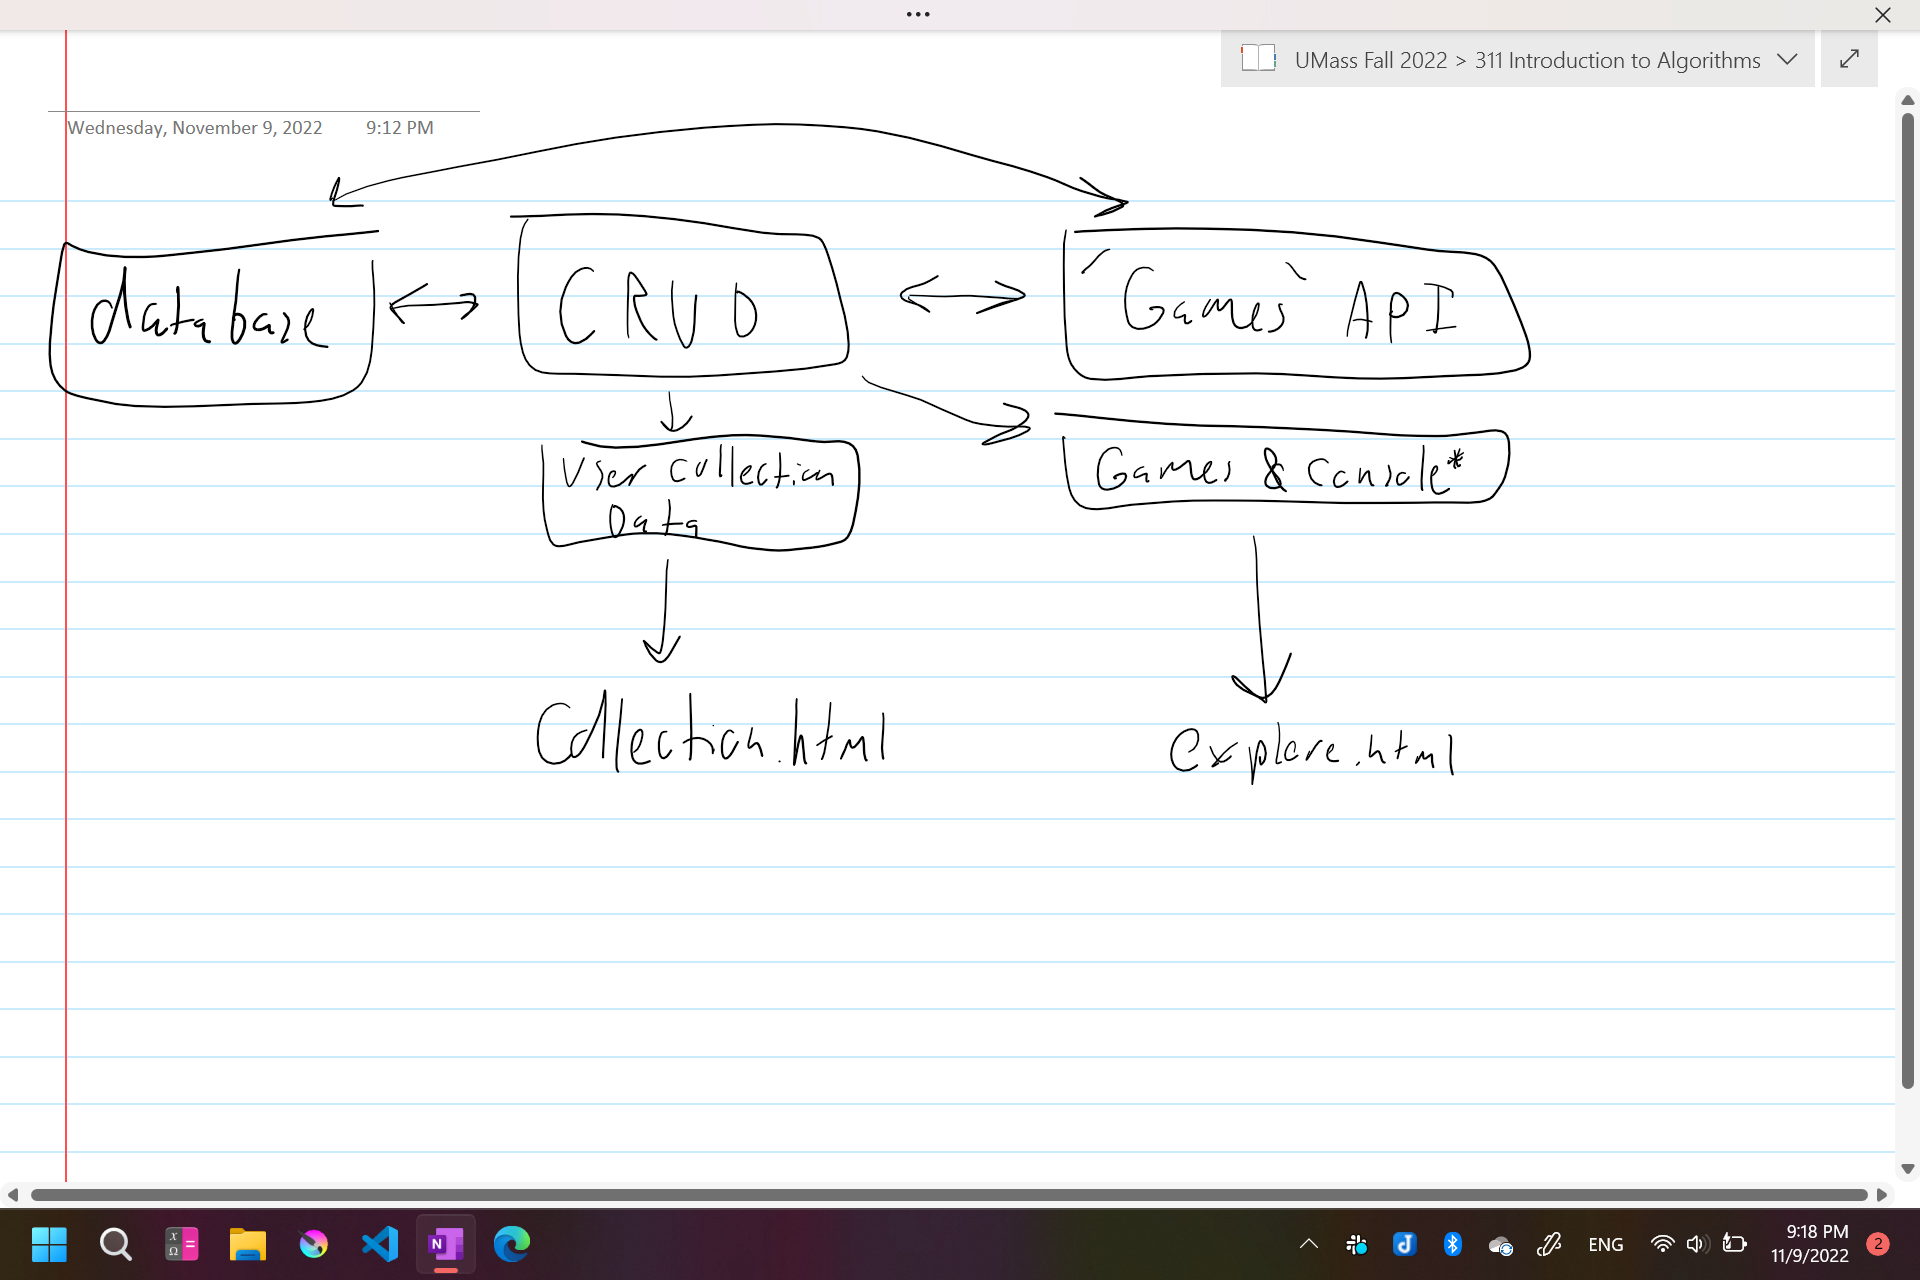 UMass Fall 2022 > 311 Introduction to Algorithms
Wednesday, November 9, 2022 9:12 PM
database
CRUD
"Games" API
User Collection
Data
Games & Console*
Collection.html
explore.html
ENG
9:18 PM
11/9/2022
2